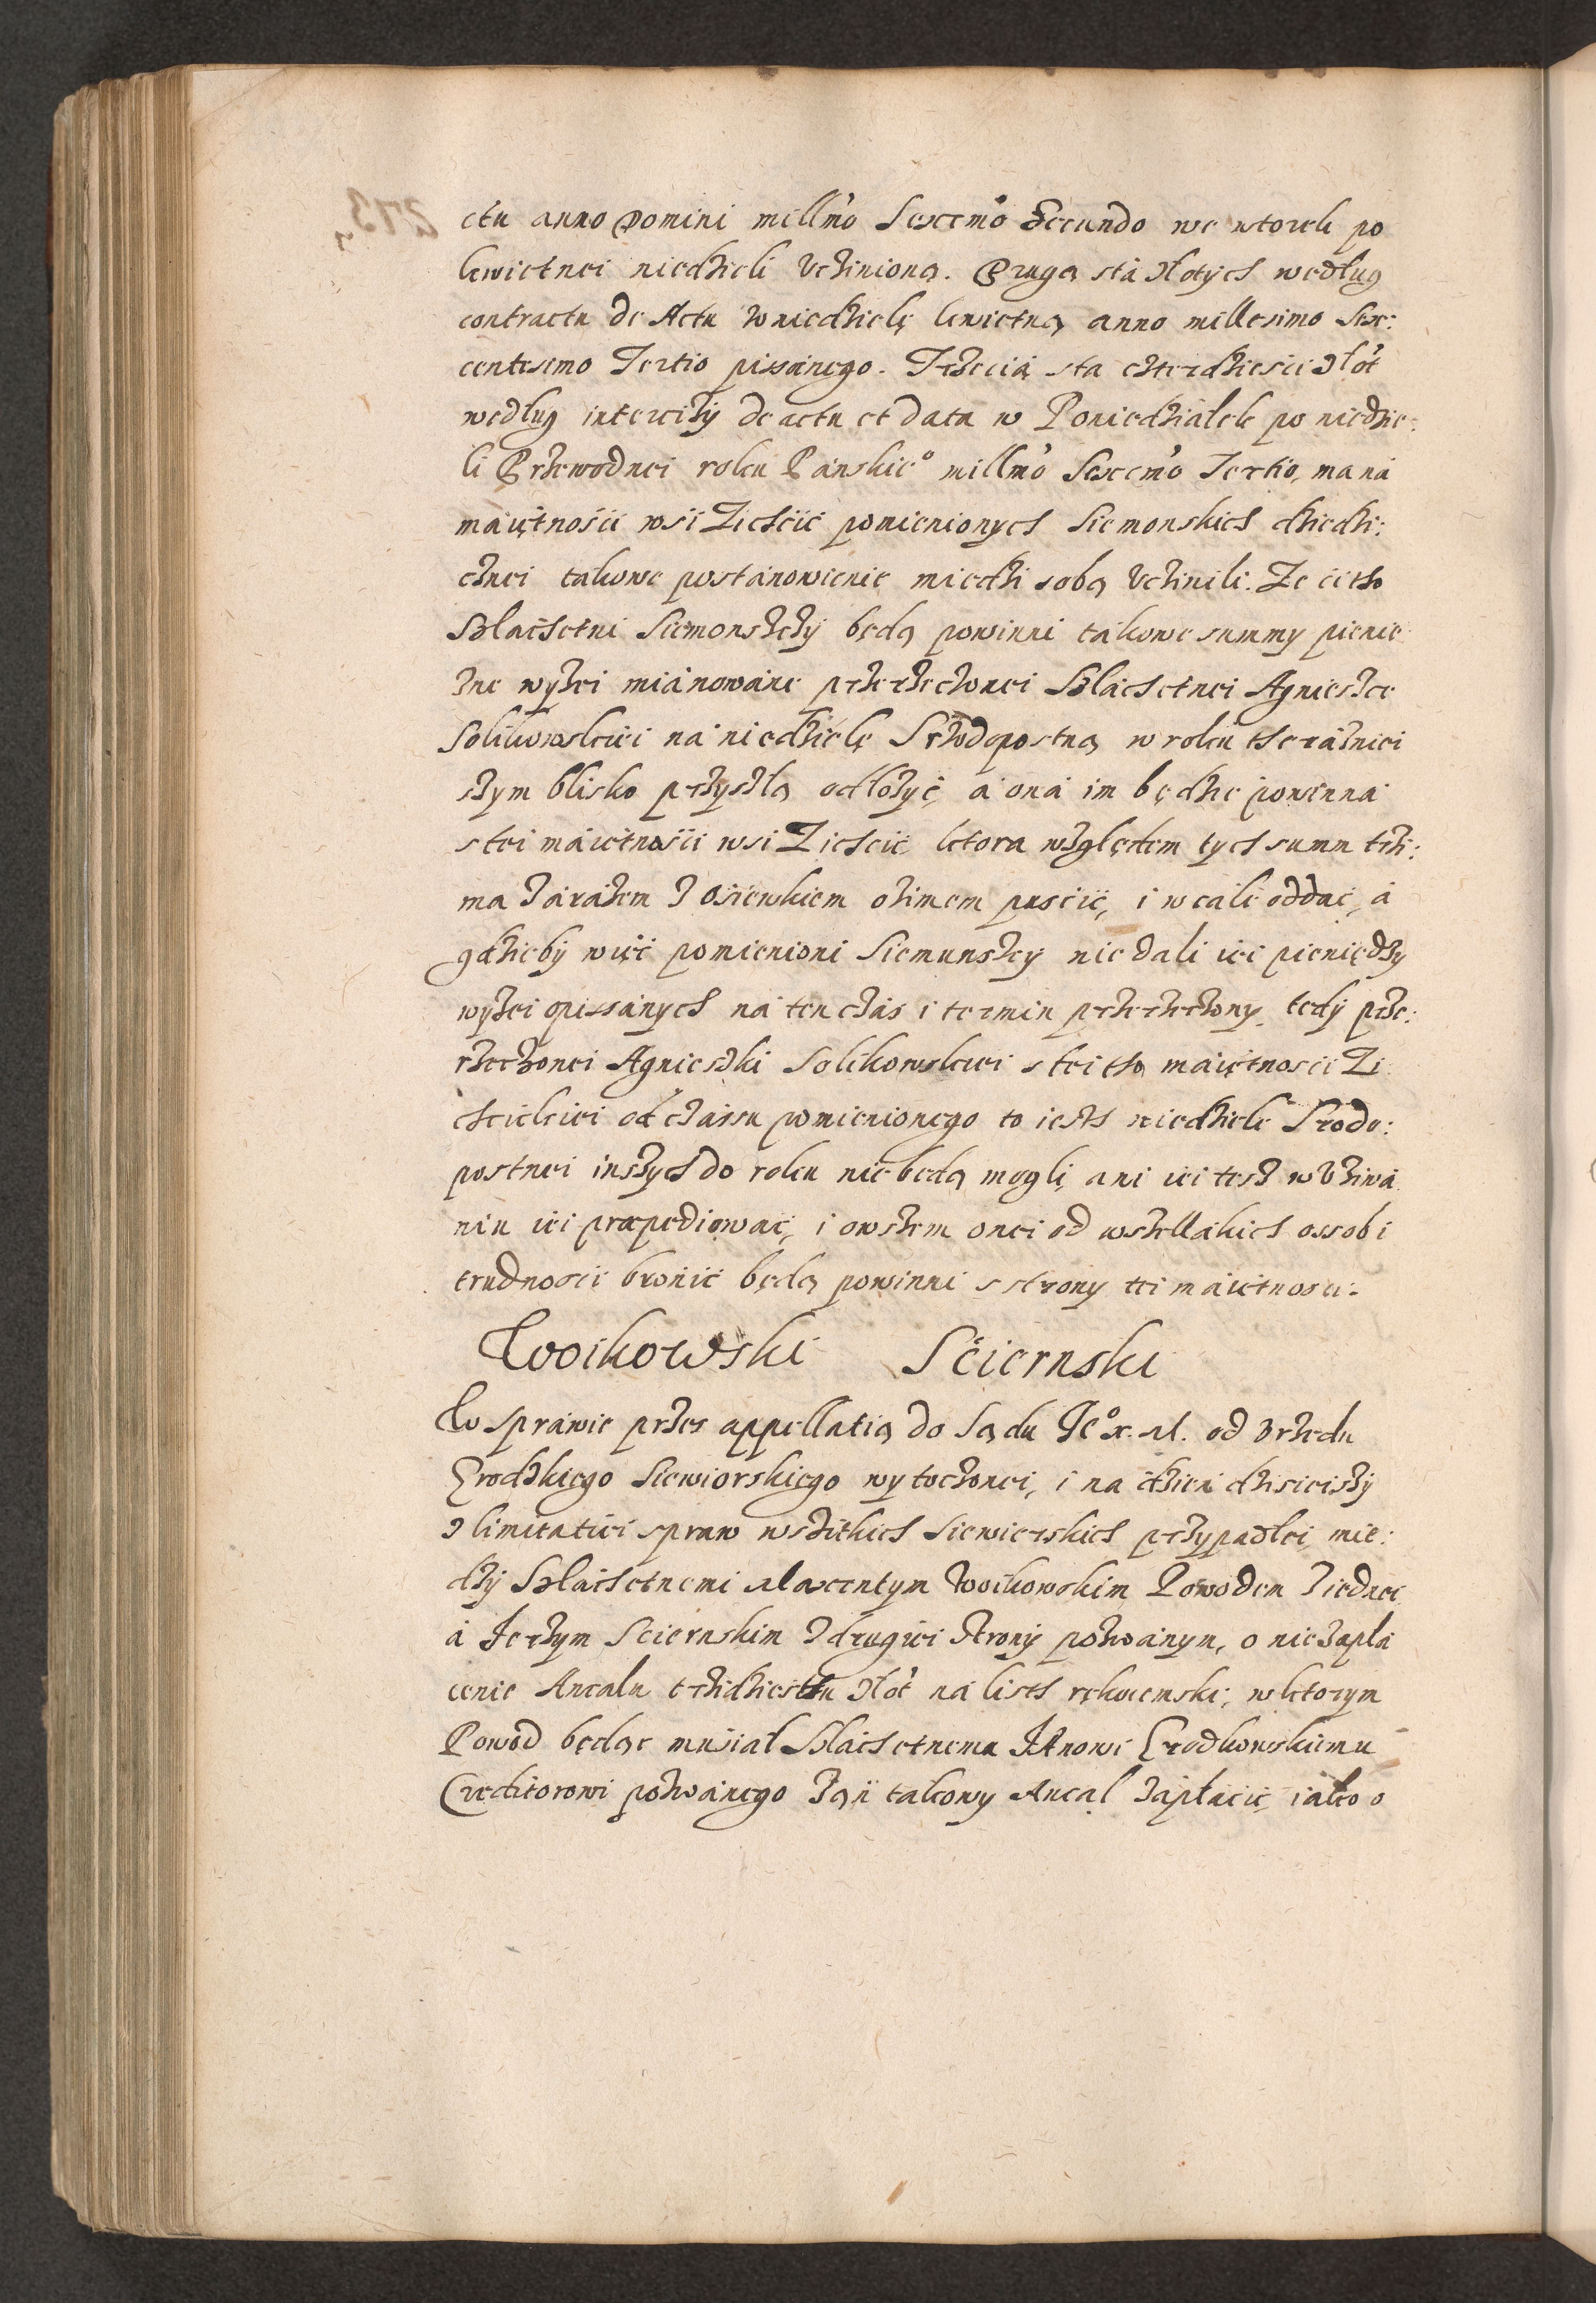 ctu anno Domini mill'mo Sexcemo Secundo we wtorek po
kwietnei niedzieli Vczinioną. Drugą stá złotÿch według
contractu de Actu w niedzielę kwietną anno millesimo Sex:
centesimo Tertio pissánego. Trzecią sta czterdziesci złot
według intercizÿ de actu et datu w Poniedziałek po niedzie:
li Przewodnei roku Pánskie° mill'mo Sexcemo Tertio, ma ná
máiętnosii wsi Zichcic pomienionych Siemonskich dziedzi:
cznei takowe postánowienie miedzi sobą Vczinili. Ze ci tho
Slachetni Siemonsczÿ będą powinni tákowe summy pienie
zne wyżei miánowáne przerzeczonei Slachetnei Agniescze
Solikowskiei ná niedzielę Srzodopostną w roku therázniei
szym blisko przyszłą odłożyć, á oná im będzie powinná
s tei máietnosii wsi Zichcic ktora względem tych summ trzi:
ma zárázem z osiewkiem ozimem puscić, i w cale oddać, á
gdzieby więc pomienioni Siemunsczy nie dali iei pieniędzy
wyżei opissánych ná ten czás i termin przerzeczony, tedy prze:
rzeczonei Agnieszki Solikowskiei s tei tho máiętnosci Zi
chcickiei od czássu pomienionego to iesth niedziele Srodo:
postnei inszych do roku nie będą mogli, ani iei tesz w Vżiwá
niu iei præpediować, i owszem onei od wszellákich ossob i
trudnosii bronić będą powinni s strony tei máietnosci.
Woikowski Sciernski
W spráwie przes appellatią do Sądu Je° x. M. od Vrzędu
Grodzkiego Siewiorskiego wytoczonei, i na dzień dzisieiszÿ
z limitatiei spraw wszitkich Siewierskich przypadłei, mie:
dzÿ Slachetnemi Maxentym Woikowskim Powodem z iednei
á Jerzym Sciernskim z drugiei stronÿ pozwánym, o niezapłá
cenie Ancalu trzidziestu złot ná listh rękoiemski, w ktorym
Powod będąc musiał Slachetnemu JAnowi Grodkowskiemu
Creditorowi pozwánego zań takowy Ancal zápłacić, iako o